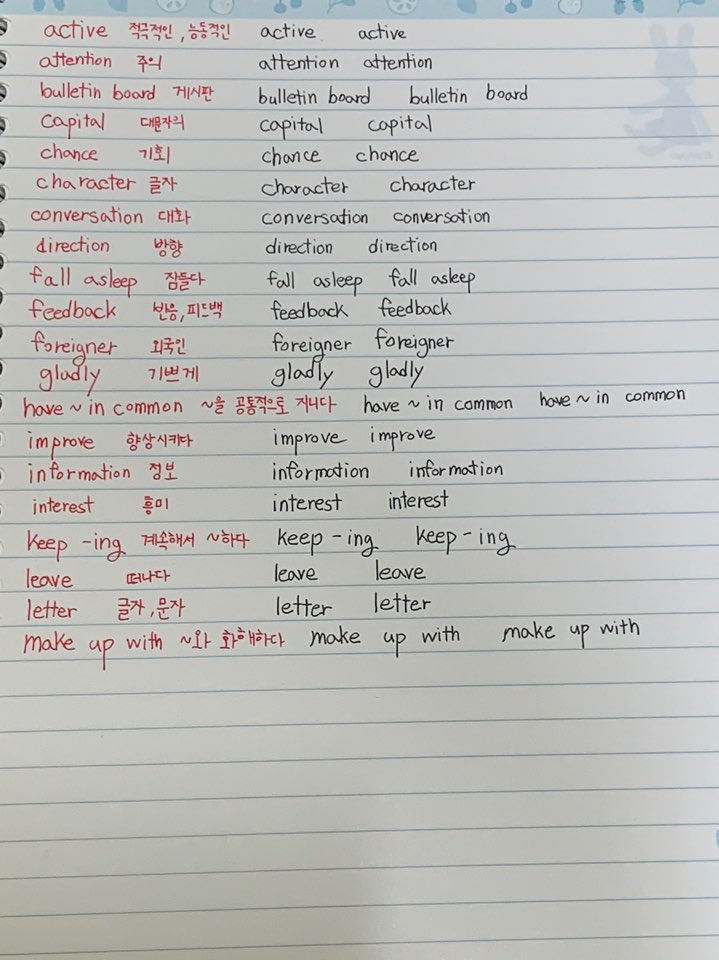 active 적극적인, 능동적인 active active
attention 주의 attention attention
bulletin board 게시판 bulletin board bulletin board
capital 대문자의 capital capital
chance 기회 chance chance
character 글자 character character
conversation 대화 conversation conversation
direction 방향 direction direction
fall asleep 잠들다 fall asleep fall asleep
feedback 반응, 피드백 feedback feedback
foreigner 외국인 foreigner foreigner
gladly 기쁘게 gladly gladly
have ~ in common ~을 공통적으로 지니다 have ~ in common have ~ in common
improve 향상시키다 improve improve
information 정보 information information
interest 흥미 interest interest
keep -ing 계속해서 ~하다 keep -ing keep -ing
leave 떠나다 leave leave
letter 글자, 문자 letter letter
make up with ~와 화해하다 make up with make up with